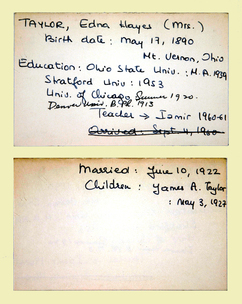 TAYLOR, Edna Hayes (Mrs.)
Birth date: May 17, 1890
Mt. Vernon, Ohio
Education: Ohio State Univ.: M.A. 1939
Stratford Univ: 1953
Univ. of Chicago, Summer 1920.
Denver Univ. B.Ph. 1913
Teacher → Izmir 1960-61
Arrived: Sept. 4, 1960
Married: June 10, 1922
Children: James A. Taylor
: May 3, 1927